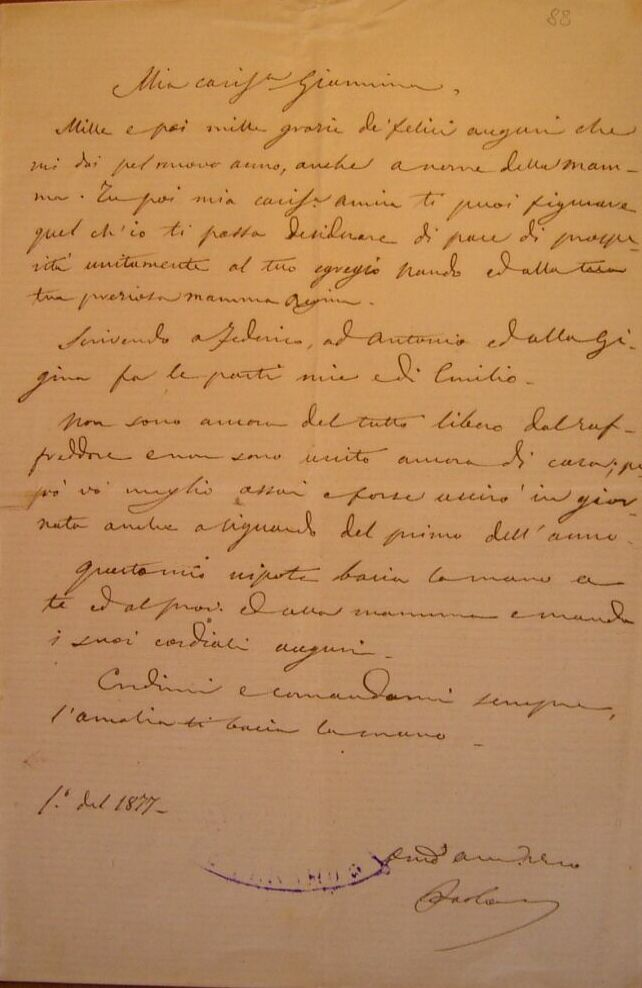 88
Mia cariss.ª Giannina,
Mille e poi mille grazie de' felici auguri che
mi dai pel nuovo anno, anche a nome della mam-
ma. Tu poi mia cariss.ª amica ti puoi figurare
quel ch'io ti possa desiderare di pace di prospe-
rità unitamente al tuo egregio Nando ed alla
tua preziosa mamma Regina.
Scrivendo a Federico, ad Antonio ed alla Gi-
gina fa le parti mie e di Emilio.
Non sono ancora del tutto libero dal raf-
freddore e non sono uscito ancora di casa; pe-
rò vò meglio assai e forse uscirò in gior-
nata anche a riguardo del primo dell'anno.
Questo mio nipote bacia la mano a
te ed al ed alla mamma e manda
i suoi cordiali auguri.
Credimi e comandami sempre,
l'Amalia ti bacia la mano.
1.º del 1877.
Paolo